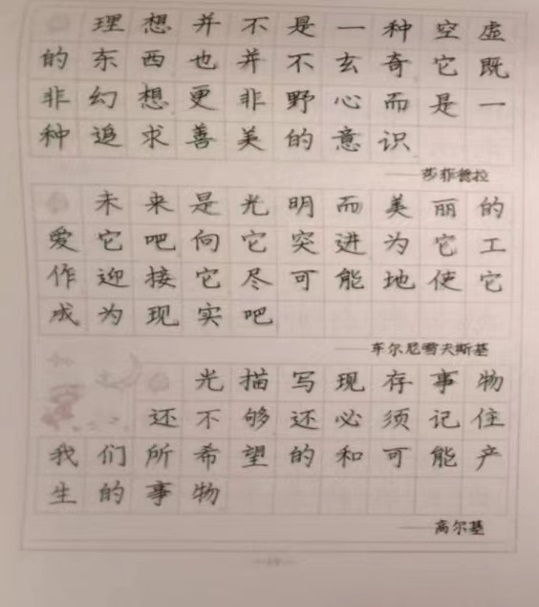 理想并不是一种空虚
的东西也并不玄奇它既
非幻想更非野心而是一
种追求善美的意识
——莎菲德拉
未来是光明而美丽的
爱它吧向它突进为它工
作迎接它尽可能地使它
成为现实吧
——车尔尼雪夫斯基
光描写现存事物
还不够还必须记住
我们所希望的和可能产
生的事物
——高尔基